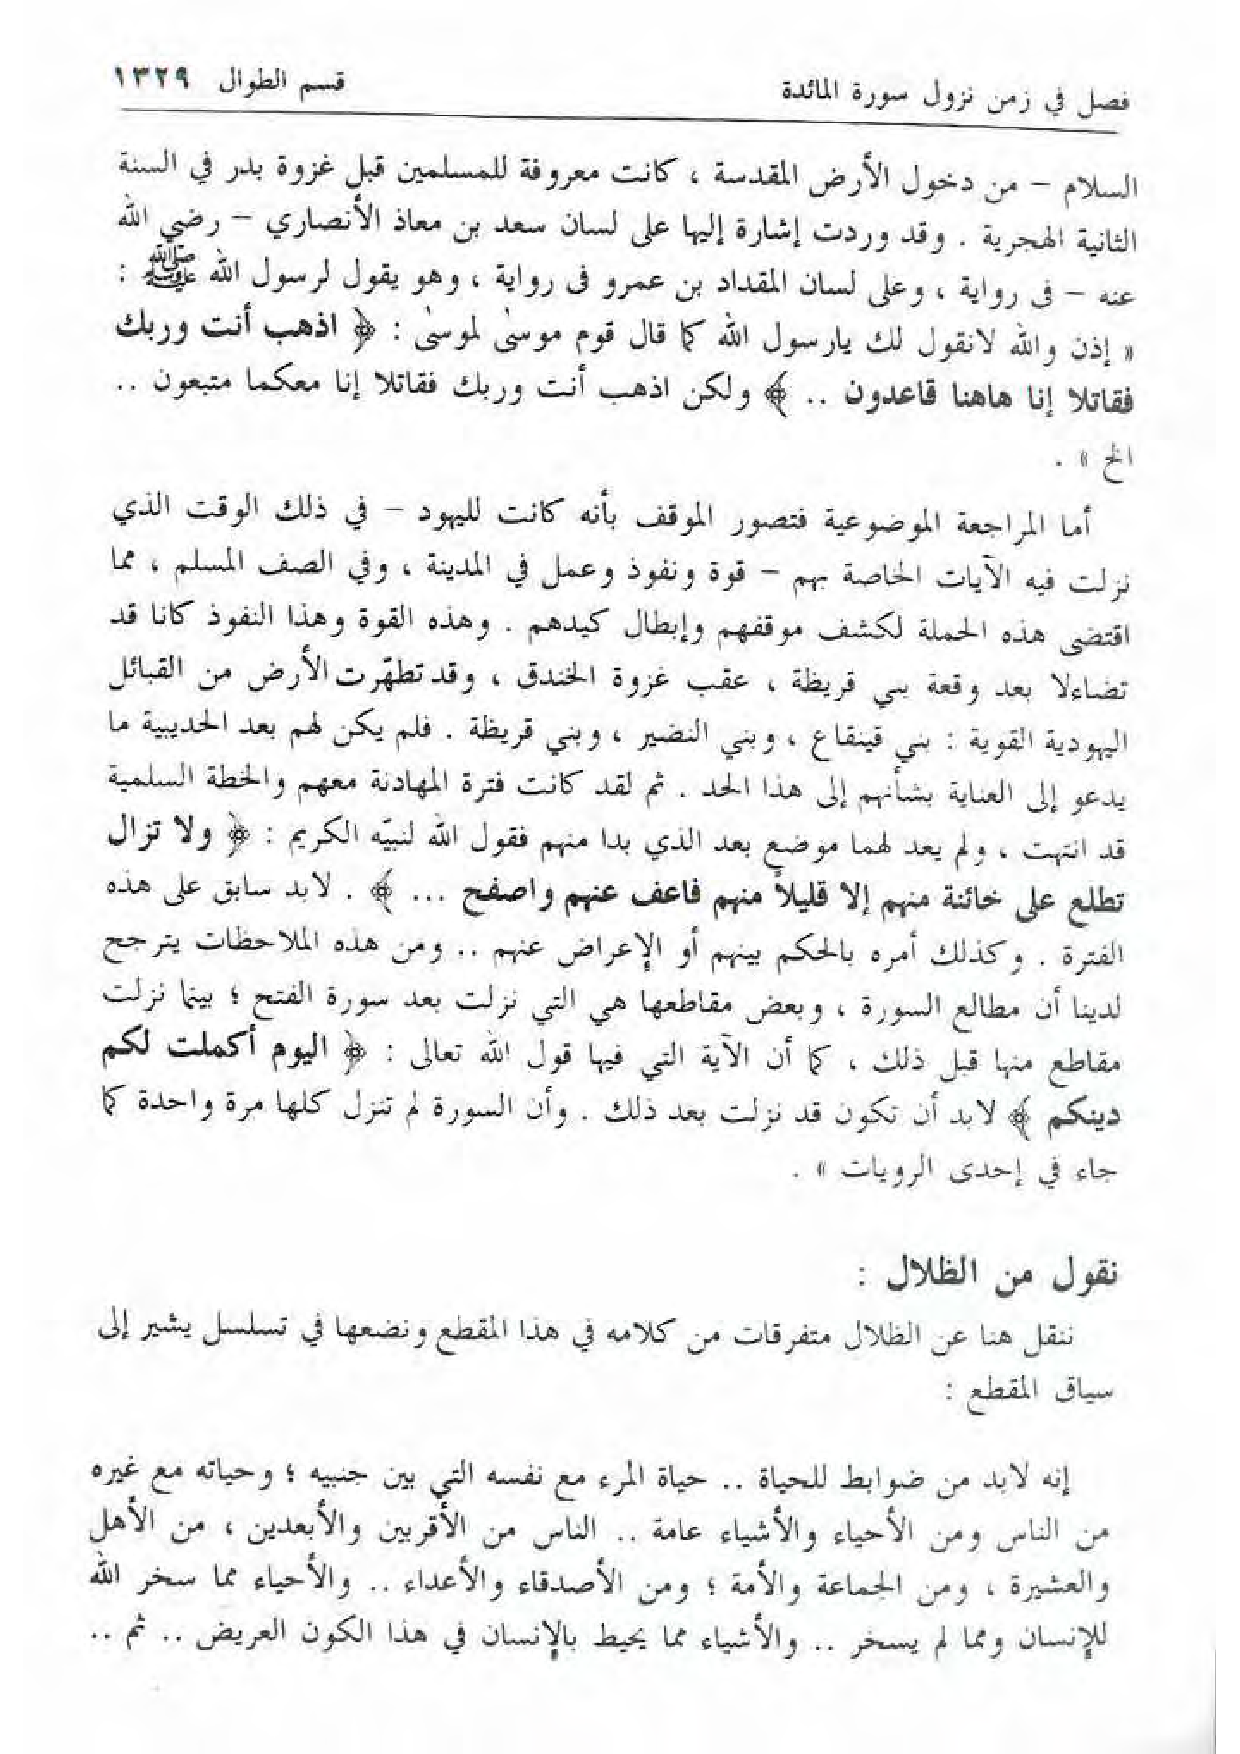 فصل في زمن نزول سورة المائدة
قسم الطوال ١٣٢٩
السلام – من دخول الأرض المقدسة ، كانت معروفة للمسلمين قبل غزوة بدر في السنة
الثانية الهجرية . وقد وردت إشارة إليها على لسان سعد بن معاذ الأنصاري – رضي الله
عنه – فى رواية ، وعلى لسان المقداد بن عمرو فى رواية ، وهو يقول لرسول الله ﷺ :
« إذن والله لانقول لك يارسول الله كما قال قوم موسىٰ لموسىٰ : ﴿ اذهب أنت وربك
فقاتلا إنا هاهنا قاعدون .. ﴾ ولكن اذهب أنت وربك فقاتلا إنا معكما متبعون ..
الخ » .
أما المراجعة الموضوعية فتصور الموقف بأنه كانت لليهود – في ذلك الوقت الذي
نزلت فيه الآيات الخاصة بهم – قوة ونفوذ وعمل في المدينة ، وفي الصف المسلم ، مما
اقتضى هذه الحملة لكشف موقفهم وإبطال كيدهم . وهذه القوة وهذا النفوذ كانا قد
تضاءلا بعد وقعة بني قريظة ، عقب غزوة الخندق ، وقد تطهّرت الأرض من القبائل
اليهودية القوية : بني قينقاع ، وبني النضير ، وبني قريظة . فلم يكن لهم بعد الحديبية ما
يدعو إلى العناية بشأنهم إلى هذا الحد . ثم لقد كانت فترة المهادنة معهم والخطة السلمية
قد انتهت ، ولم يعد لهما موضع بعد الذي بدا منهم فقول الله لنبيّه الكريم : ﴿ ولا تزال
تطلع على خائنة منهم إلا قليلاً منهم فاعف عنهم واصفح ... ﴾ . لابد سابق على هذه
الفترة . وكذلك أمره بالحكم بينهم أو الإعراض عنهم .. ومن هذه الملاحظات يترجح
لدينا أن مطالع السورة ، وبعض مقاطعها هي التي نزلت بعد سورة الفتح ؛ بينما نزلت
مقاطع منها قبل ذلك ، كما أن الآية التي فيها قول الله تعالى : ﴿ اليوم أكملت لكم
دينكم ﴾ لابد أن تكون قد نزلت بعد ذلك . وأن السورة لم تنزل كلها مرة واحدة كما
جاء في إحدى الرويات » .
نقول من الظلال :
ننقل هنا عن الظلال متفرقات من كلامه في هذا المقطع ونضعها في تسلسل يشير إلى
سياق المقطع :
إنه لابد من ضوابط للحياة .. حياة المرء مع نفسه التي بين جنبيه ؛ وحياته مع غيره
من الناس ومن الأحياء والأشياء عامة .. الناس من الأقربين والأبعدين ، من الأهل
والعشيرة ، ومن الجماعة والأمة ؛ ومن الأصدقاء والأعداء .. والأحياء مما سخر الله
للإنسان ومما لم يسخر .. والأشياء مما يحيط بالإنسان في هذا الكون العريض .. ثم ..